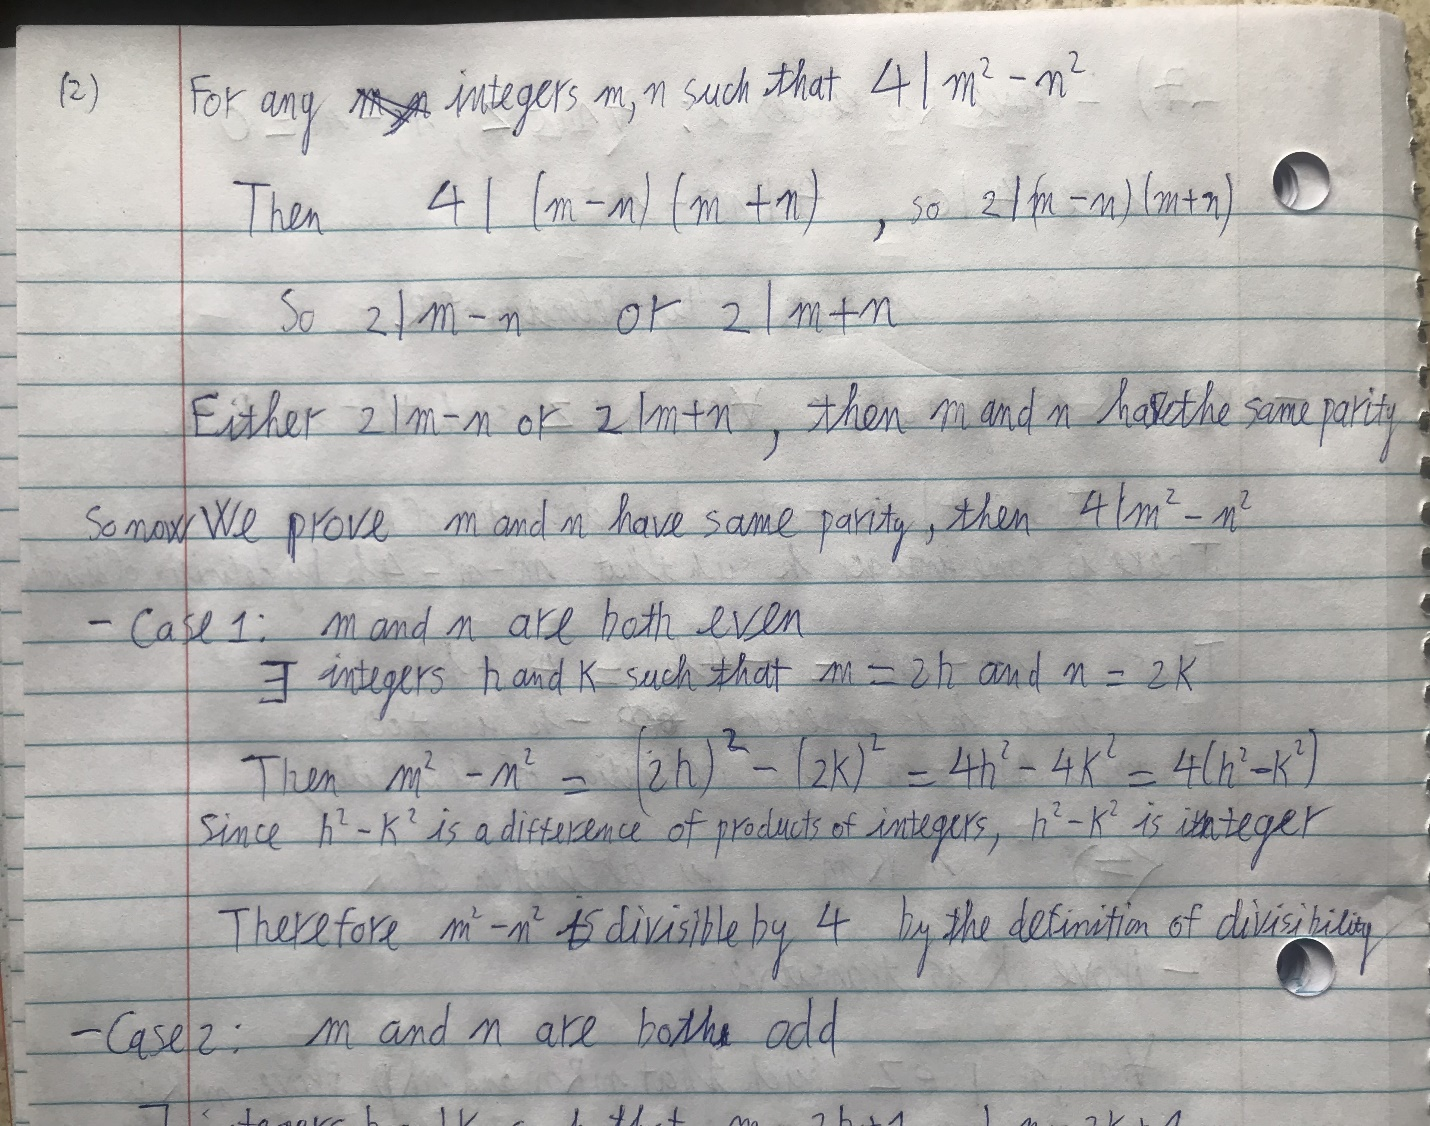 (2) For any integers m, n such that 4 | m² - n²
Then 4 | (m-n) (m+n) , so 2 | (m-n) (m+n)
So 2 | m-n or 2 | m+n
Either 2 | m-n or 2 | m+n , then m and n have the same parity
So now We prove m and n have same parity, then 4 | m² - n²
- Case 1: m and n are both even
∃ integers h and k such that m = 2h and n = 2k
Then m² - n² = (2h)² - (2k)² = 4h² - 4k² = 4(h²-k²)
Since h²-k² is a difference of products of integers, h²-k² is integer
Therefore m²-n² is divisible by 4 by the definition of divisibility
- Case 2: m and n are both odd